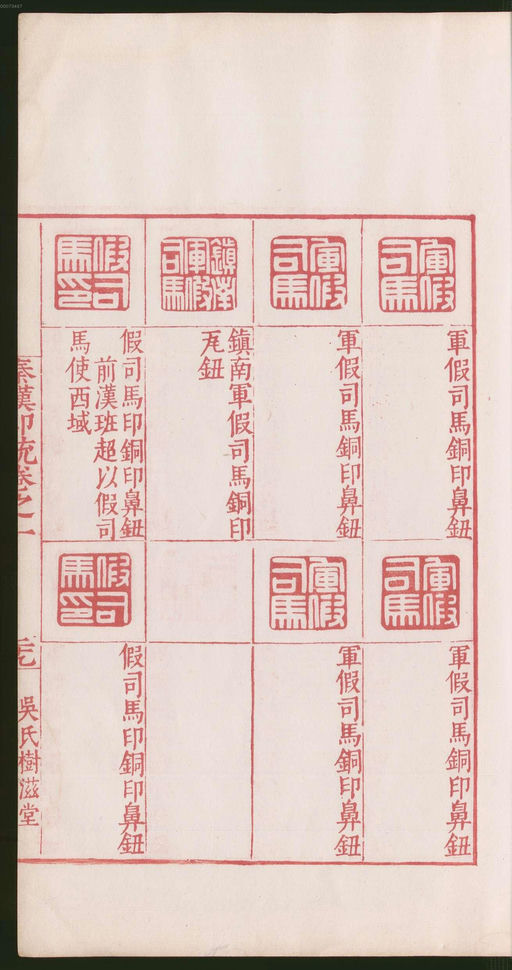 00073447
軍假司馬
軍假司馬銅印鼻鈕
軍假司馬
軍假司馬銅印鼻鈕
鎮南軍假司馬
鎮南軍假司馬銅印
瓦鈕
假司馬印
假司馬印銅印鼻鈕
前漢班超以假司
馬使西域
軍假司馬
軍假司馬銅印鼻鈕
軍假司馬
軍假司馬銅印鼻鈕
假司馬印
假司馬印銅印鼻鈕
秦漢印統卷之一
吳氏樹滋堂